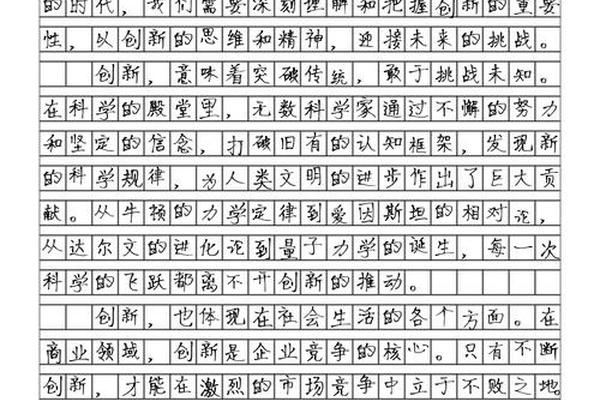 的时代，我们需要深刻理解和把握创新的重要
性，以创新的思维和精神，迎接未来的挑战。
创新，意味着突破传统，敢于挑战未知。
在科学的殿堂里，无数科学家通过不懈的努力
和坚定的信念，打破旧有的认知框架，发现新
的科学规律，为人类文明的进步作出了巨大贡
献。从牛顿的力学定律到爱因斯坦的相对论，
从达尔文的进化论到量子力学的诞生，每一次
科学的飞跃都离不开创新的推动。
创新，也体现在社会生活的各个方面。在
商业领域，创新是企业竞争的核心。只有不断
创新，才能在激烈的市场竞争中立于不败之地。